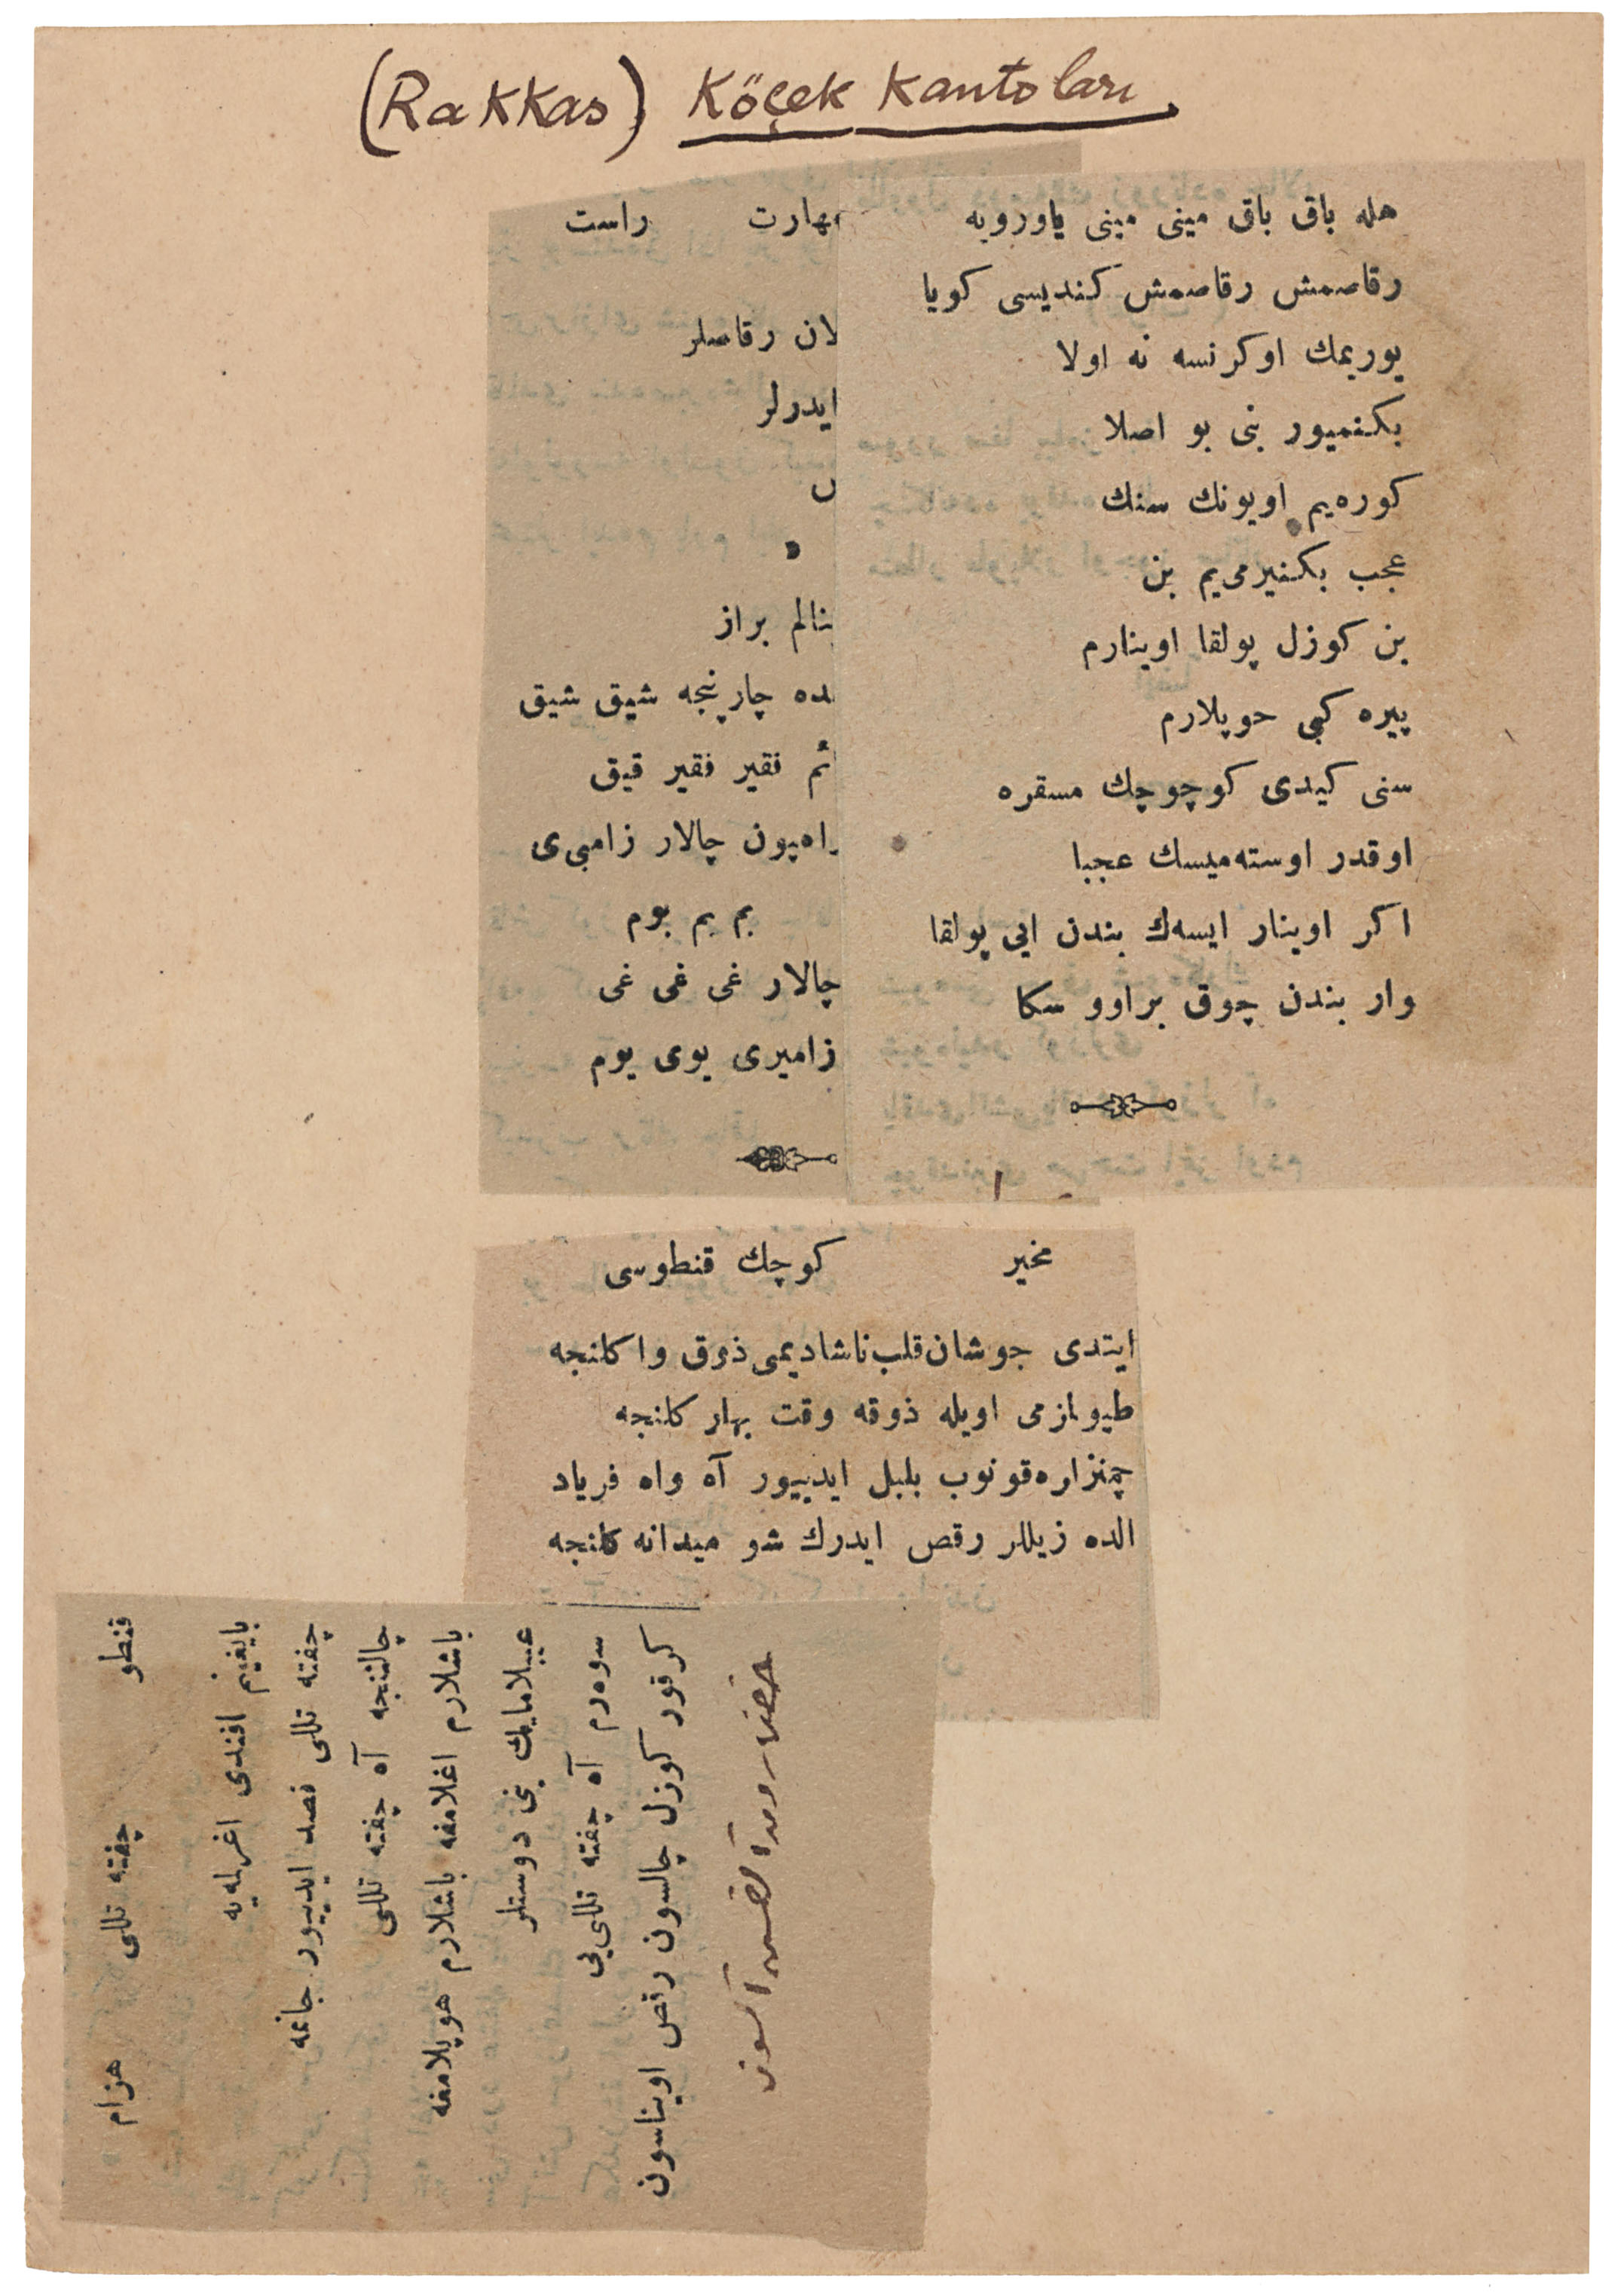 (Rakkas) Köçek Kantoları
هله باق باق مینی مینی یاورویه
رقاصمش رقاصمش کندیسی کویا
یوریمك اوکرنسه نه اولا
بکنمیور بنی بو اصلا
کوره‌یم اویونك سنك
عجب بکنیرمی‌یم بن
بن کوزل پولقا اوینارم
پیره کبی حوپلارم
سنی کیدی کوچوچك مسقره
اوقدر اوسته‌میسك عجبا
اکر اوینار ایسه‌ك بندن ایی پولقا
وار بندن چوق براوو سکا
مهارت راست
لان رقاصلر
ایدرلر
ینالم براز
نده چارپنجه شیق شیق
ئم فقیر فقیر قیق
رامپون چالار زامبی‌ی
بم بم بوم
چالار غی غی غی
زامیری یوی یوم
مخیر کوچك قنطوسی
ایتدی جوشان قلب ناشادیمی ذوق واکلنجه
طیولزمی اویله ذوقه وقت بهار کلنجه
چمنزاره قونوب بلبل ایدییور آه واه فریاد
الده زیللر رقص ایدرك شو میدانه کلنجه
هزام چفته تللی قنطو
بایغینم افندی اغرلمه‌یه
چفته تللی قصد ایدییور جانمه
چالننجه آه چفته تللی
باشلارم اغلامغه باشلارم هوپلامغه
عیبلامایك بنی دوستلر
سوه‌رم آه چفته تللی‌یی
کرقور کوزل چالسون رقص اویناسون